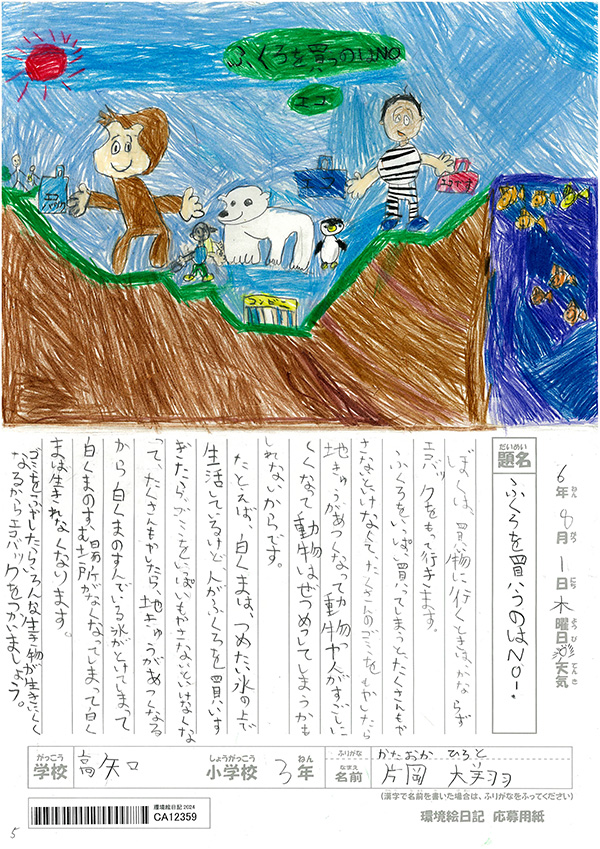 ふくろを買うのはNO
エコ
エコバック
エコ
コンビニ
6年 8月 1日 木曜日 天気
ねん がつ にち ようび てんき
だいめい
題名
ふくろを買うのはNO!
ぼくは、買い物に行くときはかならず
エコバックをもって行きます。
ふくろをいっぱい買ってしまうとたくさんもや
さないといけなくて、たくさんのゴミをもやしたら
地きゅうがあつくなって動物や人がすごしに
くくなって動物はぜつめつしてしまうかも
しれないからです。
たとえば、白くまは、つめたい氷の上で
生活しているけど、人がふくろを買いす
ぎたら、ゴミをいっぱいもやさないといけなくな
って、たくさんもやしたら、地きゅうがあつくなる
から、白くまのすんでいる氷がとけてしまって
白くまのすむ場所がなくなってしまって白く
まは生きれなくなります。
ゴミをふやしたらいろんな生き物が生きにくく
なるからエコバックをつかいましょう。
がっこう しょうがっこう ねん
学校 高矢口 小学校 3年
ふりがな かたおか ひろと
なまえ
名前 片岡 大翔
(漢字で名前を書いた場合は、ふりがなをふってください)
環境絵日記 2024
CA12359
環境絵日記 応募用紙
5